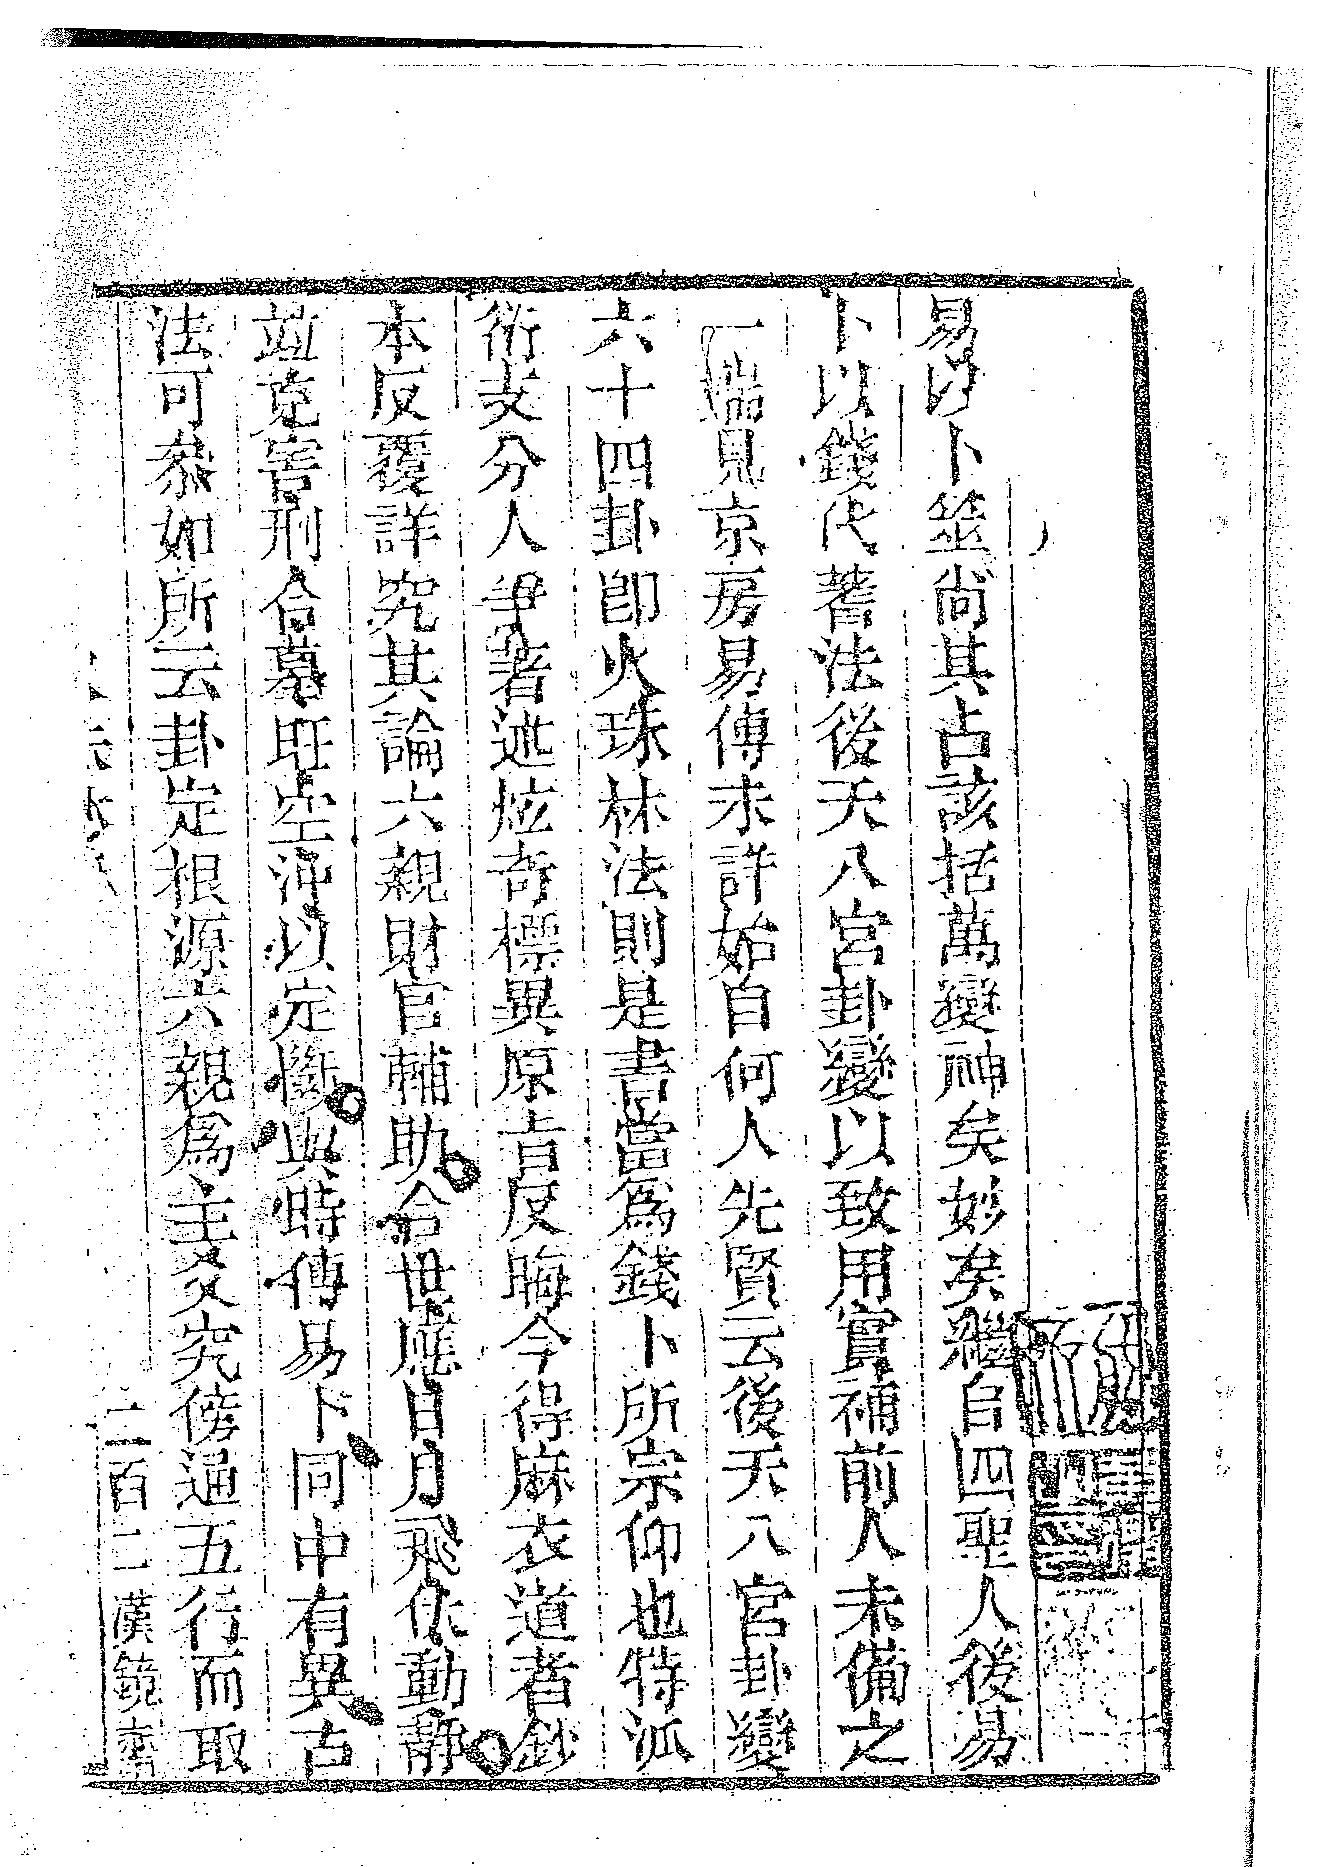 易以卜筮尚其占該括萬變神矣妙矣繼自四聖人後易
卜以錢代蓍法後天八宮卦變以致用實補前人未備之
一端見京房易傳未詳始自何人先賢云後天八宮卦變
六十四卦卽火珠林法則是書當為錢卜所宗仰也特派
衍支分人爭著述炫奇標異原旨反晦今得麻衣道者鈔
本反覆詳究其論六親財官輔助合世應日月飛伏動靜
竝克害刑合墓旺空沖以定斷與時傳易卜同中有異古
法可叅如所云卦定根源六親爲主爻究傍通五行而取
二百二漢鏡齋